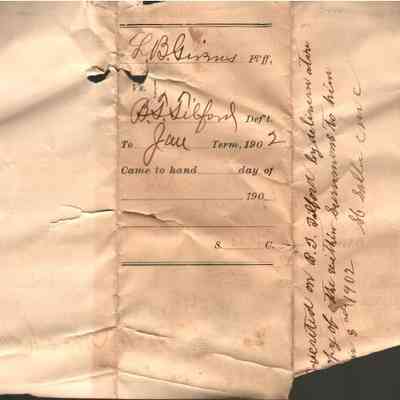 L. B. Givens Pl'ff.
Vs.
B. T. Tilford Def't.
To Jan Term, 1902
Came to hand day of
190
S. C.
on B. T. Tilford by delivering
copy of the within summons to him
2nd 1902